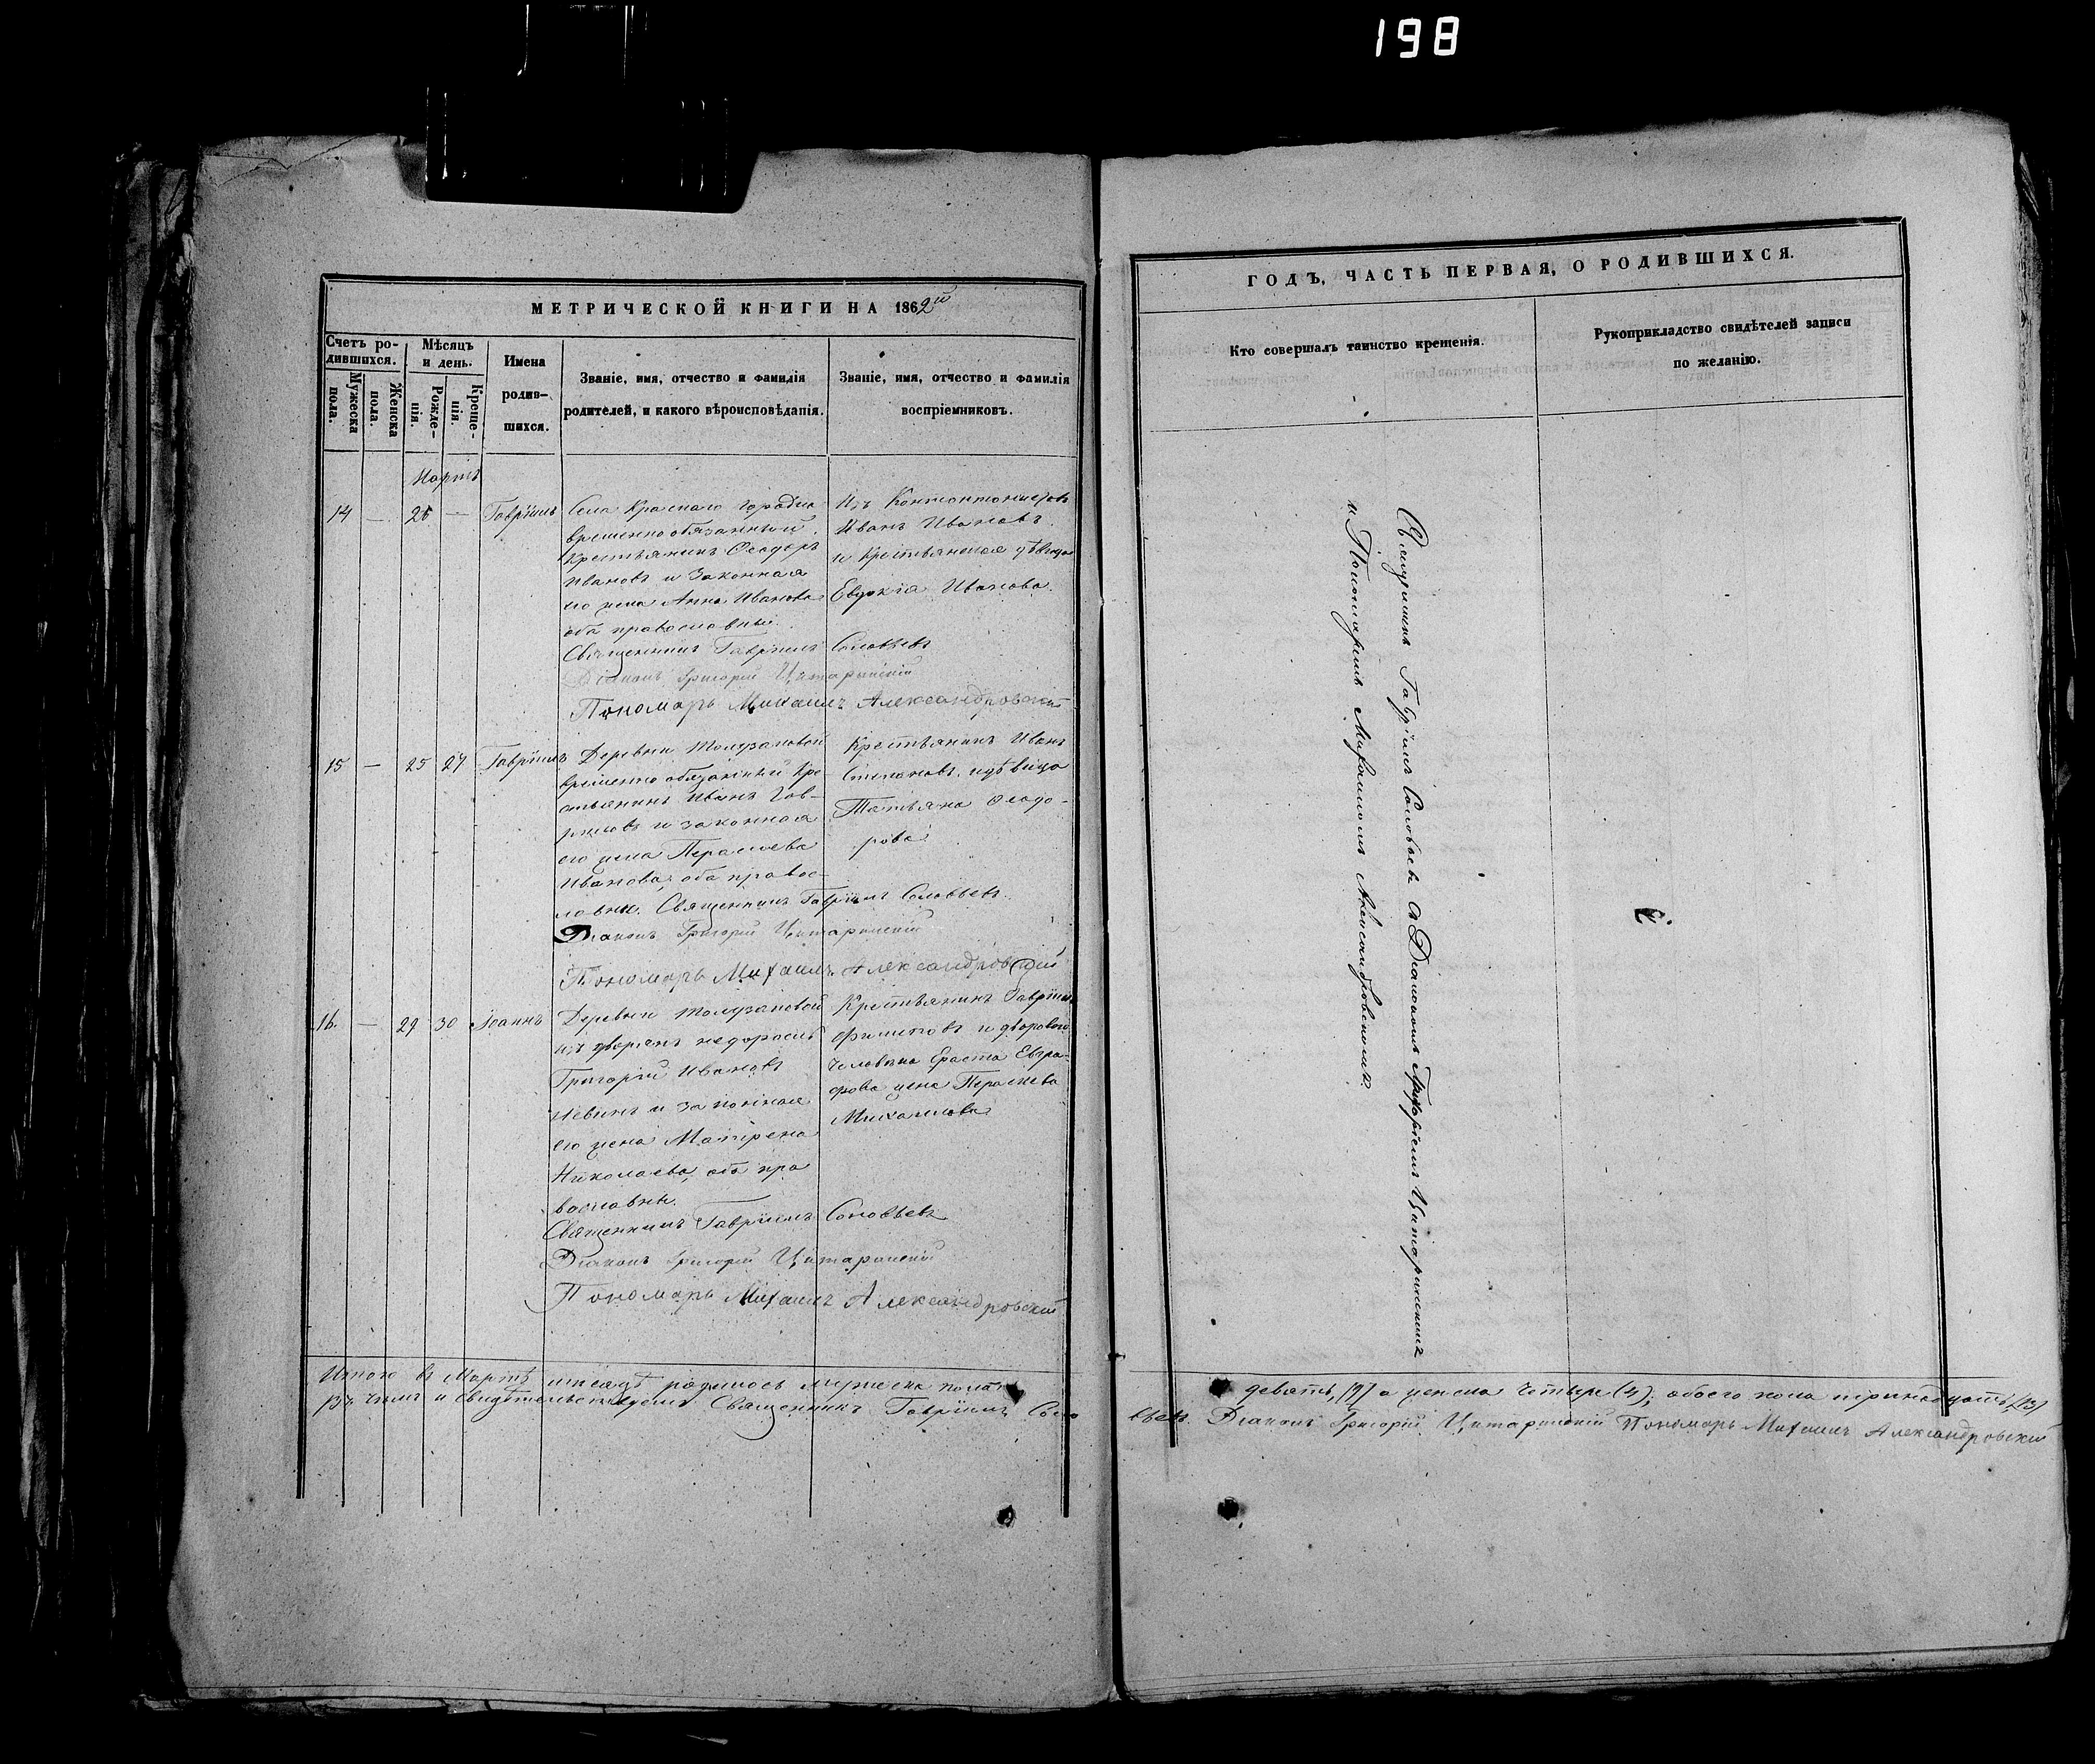 198
МЕТРИЧЕСКОЙ КНИГИ НА 1862й
Счетъ ро-
дившихся.
Мужеска
пола.
Женска
пола.
Мѣсяцъ
и день.
Рожде-
нія.
Креще-
нія.
Имена
родив-
шихся.
Званіе, имя, отчество и фамилія
родителей, и какого вѣроисповѣданія.
Званіе, имя, отчество и фамилія
воспріемниковъ.
Мартъ
14 — 26 — Гавріилъ
Села Краснаго Городка
временно обязанный
крестьянинъ Ѳеодоръ
Ивановъ и законная
его жена Анна Иванова
оба православные.
Изъ Кантонистовъ
Иванъ Ивановъ
и крестьянская дѣвица
Евдокія Иванова.
Священникъ Гавріилъ Соловьевъ
Діаконъ Григорій
Пономарь Михаилъ Александровскій
15 — 25 27 Гавріилъ
Деревни
временно обязанный кре-
стьянинъ Иванъ Гав-
риловъ и законная
его жена Параскева
Иванова, оба правос-
лавные. Священникъ Гавріилъ Соловьевъ.
Крестьянинъ Иванъ
Степановъ и дѣвица
Татьяна Ѳеодо-
рова
Діаконъ Григорій
Пономарь Михаилъ Александровскій
16. — 29 30 Іоаннъ
Деревни
изъ дворянъ недоросль
Григорій Ивановъ
и законная
его жена Матрена
Николаева, оба пра
вославные.
Крестьянинъ Гавріилъ
Филиповъ и двороваго
человѣка Ераста Евгра-
фова жена Параскева
Михайлова
Священникъ Гавріилъ Соловьевъ
Діаконъ Григорій
Пономарь Михаилъ Александровскій
Итого въ Мартѣ мѣсяцѣ родилось мужеска пола
въ чемъ и свидѣтельствуемъ Священникъ Гавріилъ Соло
ГОДЪ, ЧАСТЬ ПЕРВАЯ, О РОДИВШИХСЯ.
Кто совершалъ таинство крещенія.
Рукоприкладство свидѣтелей записи
по желанію.
Священникъ Гавріилъ Соловьевъ съ Діакономъ Григоріемъ
и Пономаремъ Михаиломъ Александровскимъ.
девять, (9) а женска четыре (4); обоего пола тринадцать (13)
вьевъ. Діаконъ Григорій Пономарь Михаилъ Александровскій